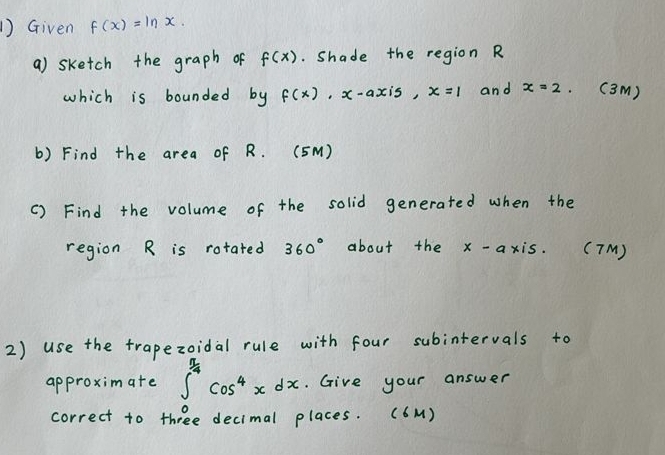 1) Given f(x) = ln x.
a) Sketch the graph of f(x). Shade the region R
which is bounded by f(x), x-axis, x=1 and x=2. (3M)
b) Find the area of R. (5M)
c) Find the volume of the solid generated when the
region R is rotated 360° about the x-axis. (7M)
2) use the trapezoidal rule with four subintervals to
approximate ∫₀^(π/4) cos⁴ x dx. Give your answer
correct to three decimal places. (6M)